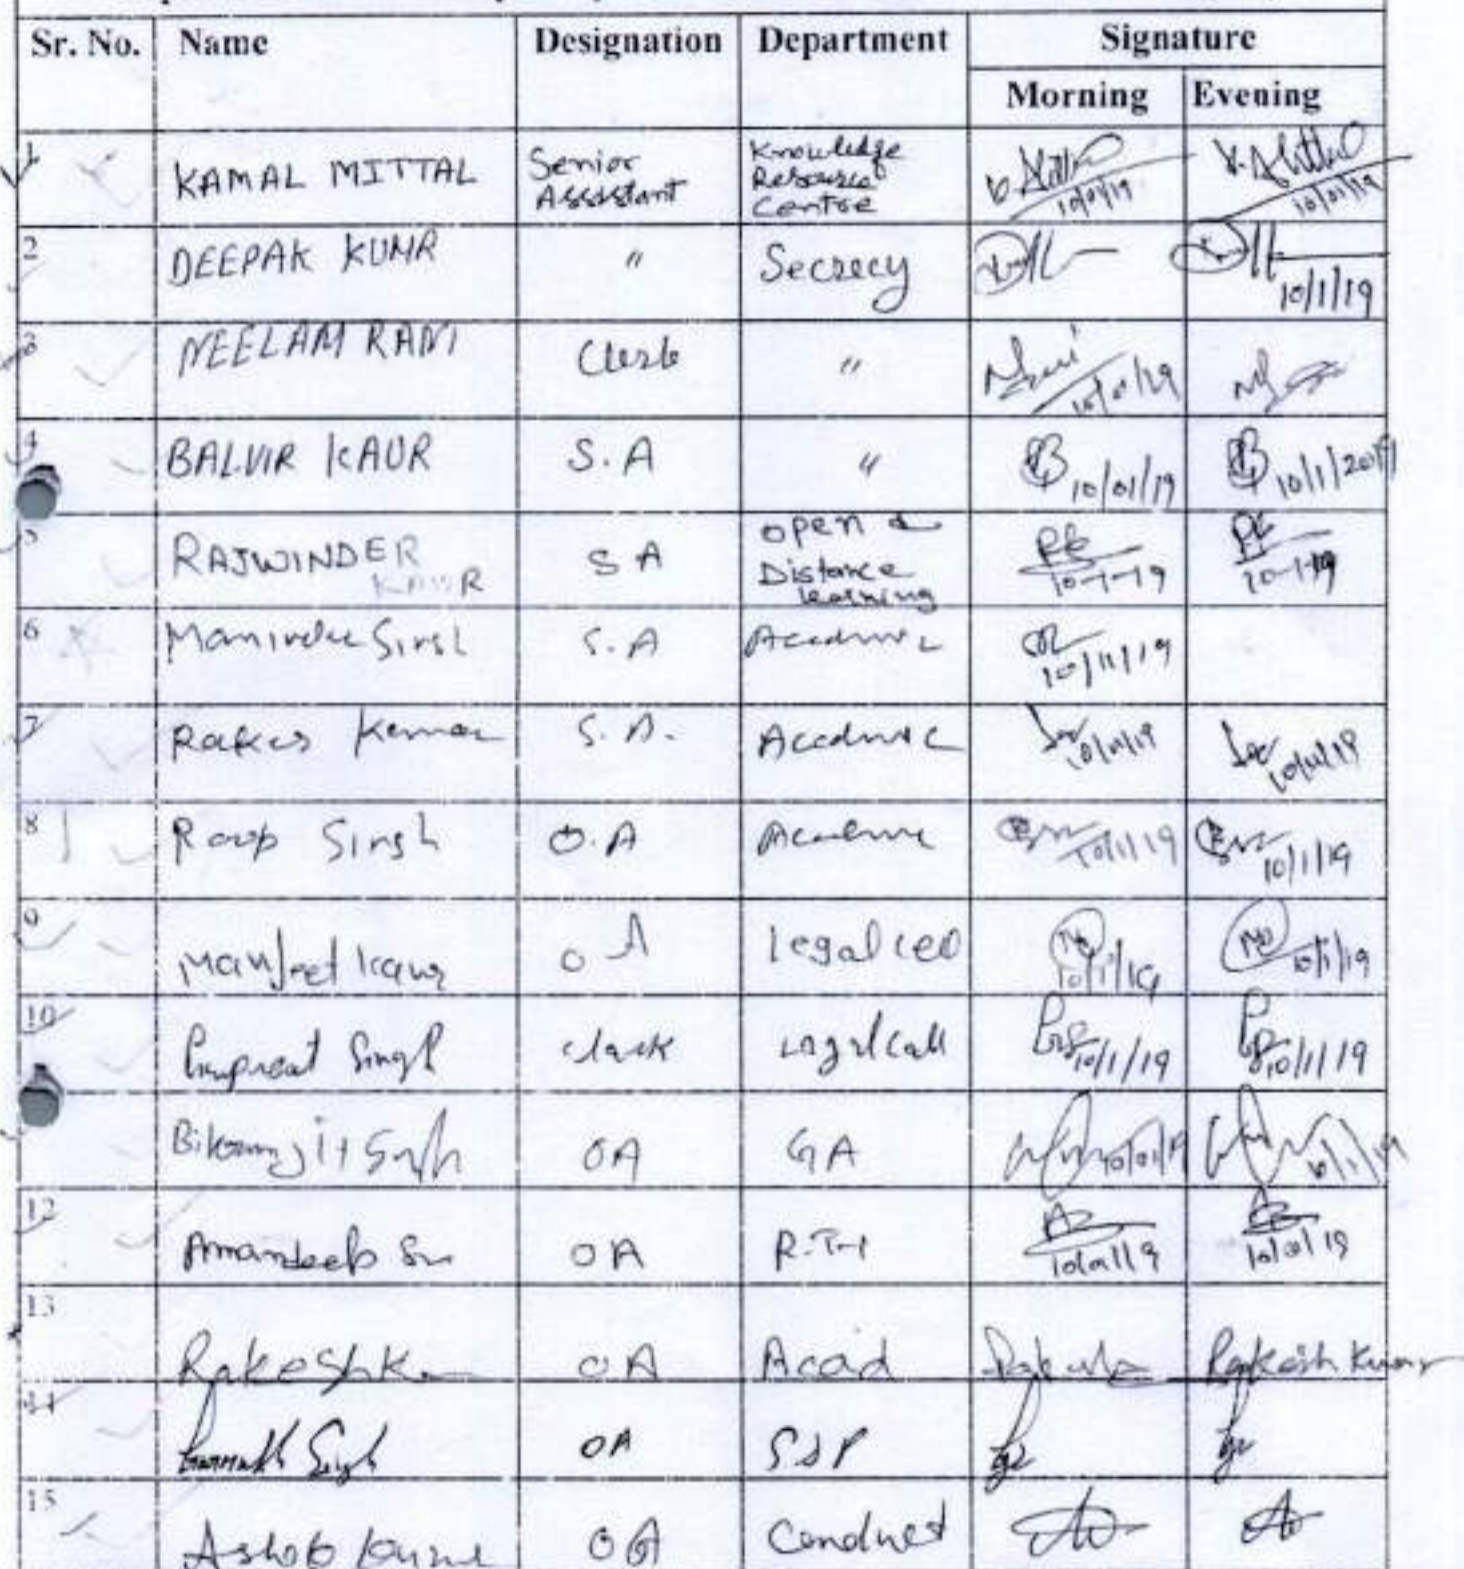 Sr. No. Name Designation Department Signature
Morning Evening
1 KAMAL MITTAL Senior Assistant Knowledge Resource Centre 10/01/19 K. Mittal 10/01/19
2 DEEPAK KUMR " Secrecy 10/1/19
3 NEELAM RANI Clerk "
4 BALVIR KAUR S.A " 10/01/19 10/1/2019
5 RAJWINDER KAUR S A Open & Distance learning RK 10-1-19 RK 10-1-19
6 Maninder Singh S.A Academic
7 Rakes Kumar S.A. Academic
8 Roop Singh O.A Academic 10/1/19 10/1/19
9 Manjeet Kaur O A Legal cell 10/1/19 10/1/19
10 Singh clark Legal Call 10/1/19 10/1/19
Bikramjit Singh OA GA 10/01/19
12 Amandeep OA 10/01/19 10/01/19
13 Rakesh K OA Acad Rakesh Kumar
14 Singh OA
15 Ashok Kumar OA Conduct